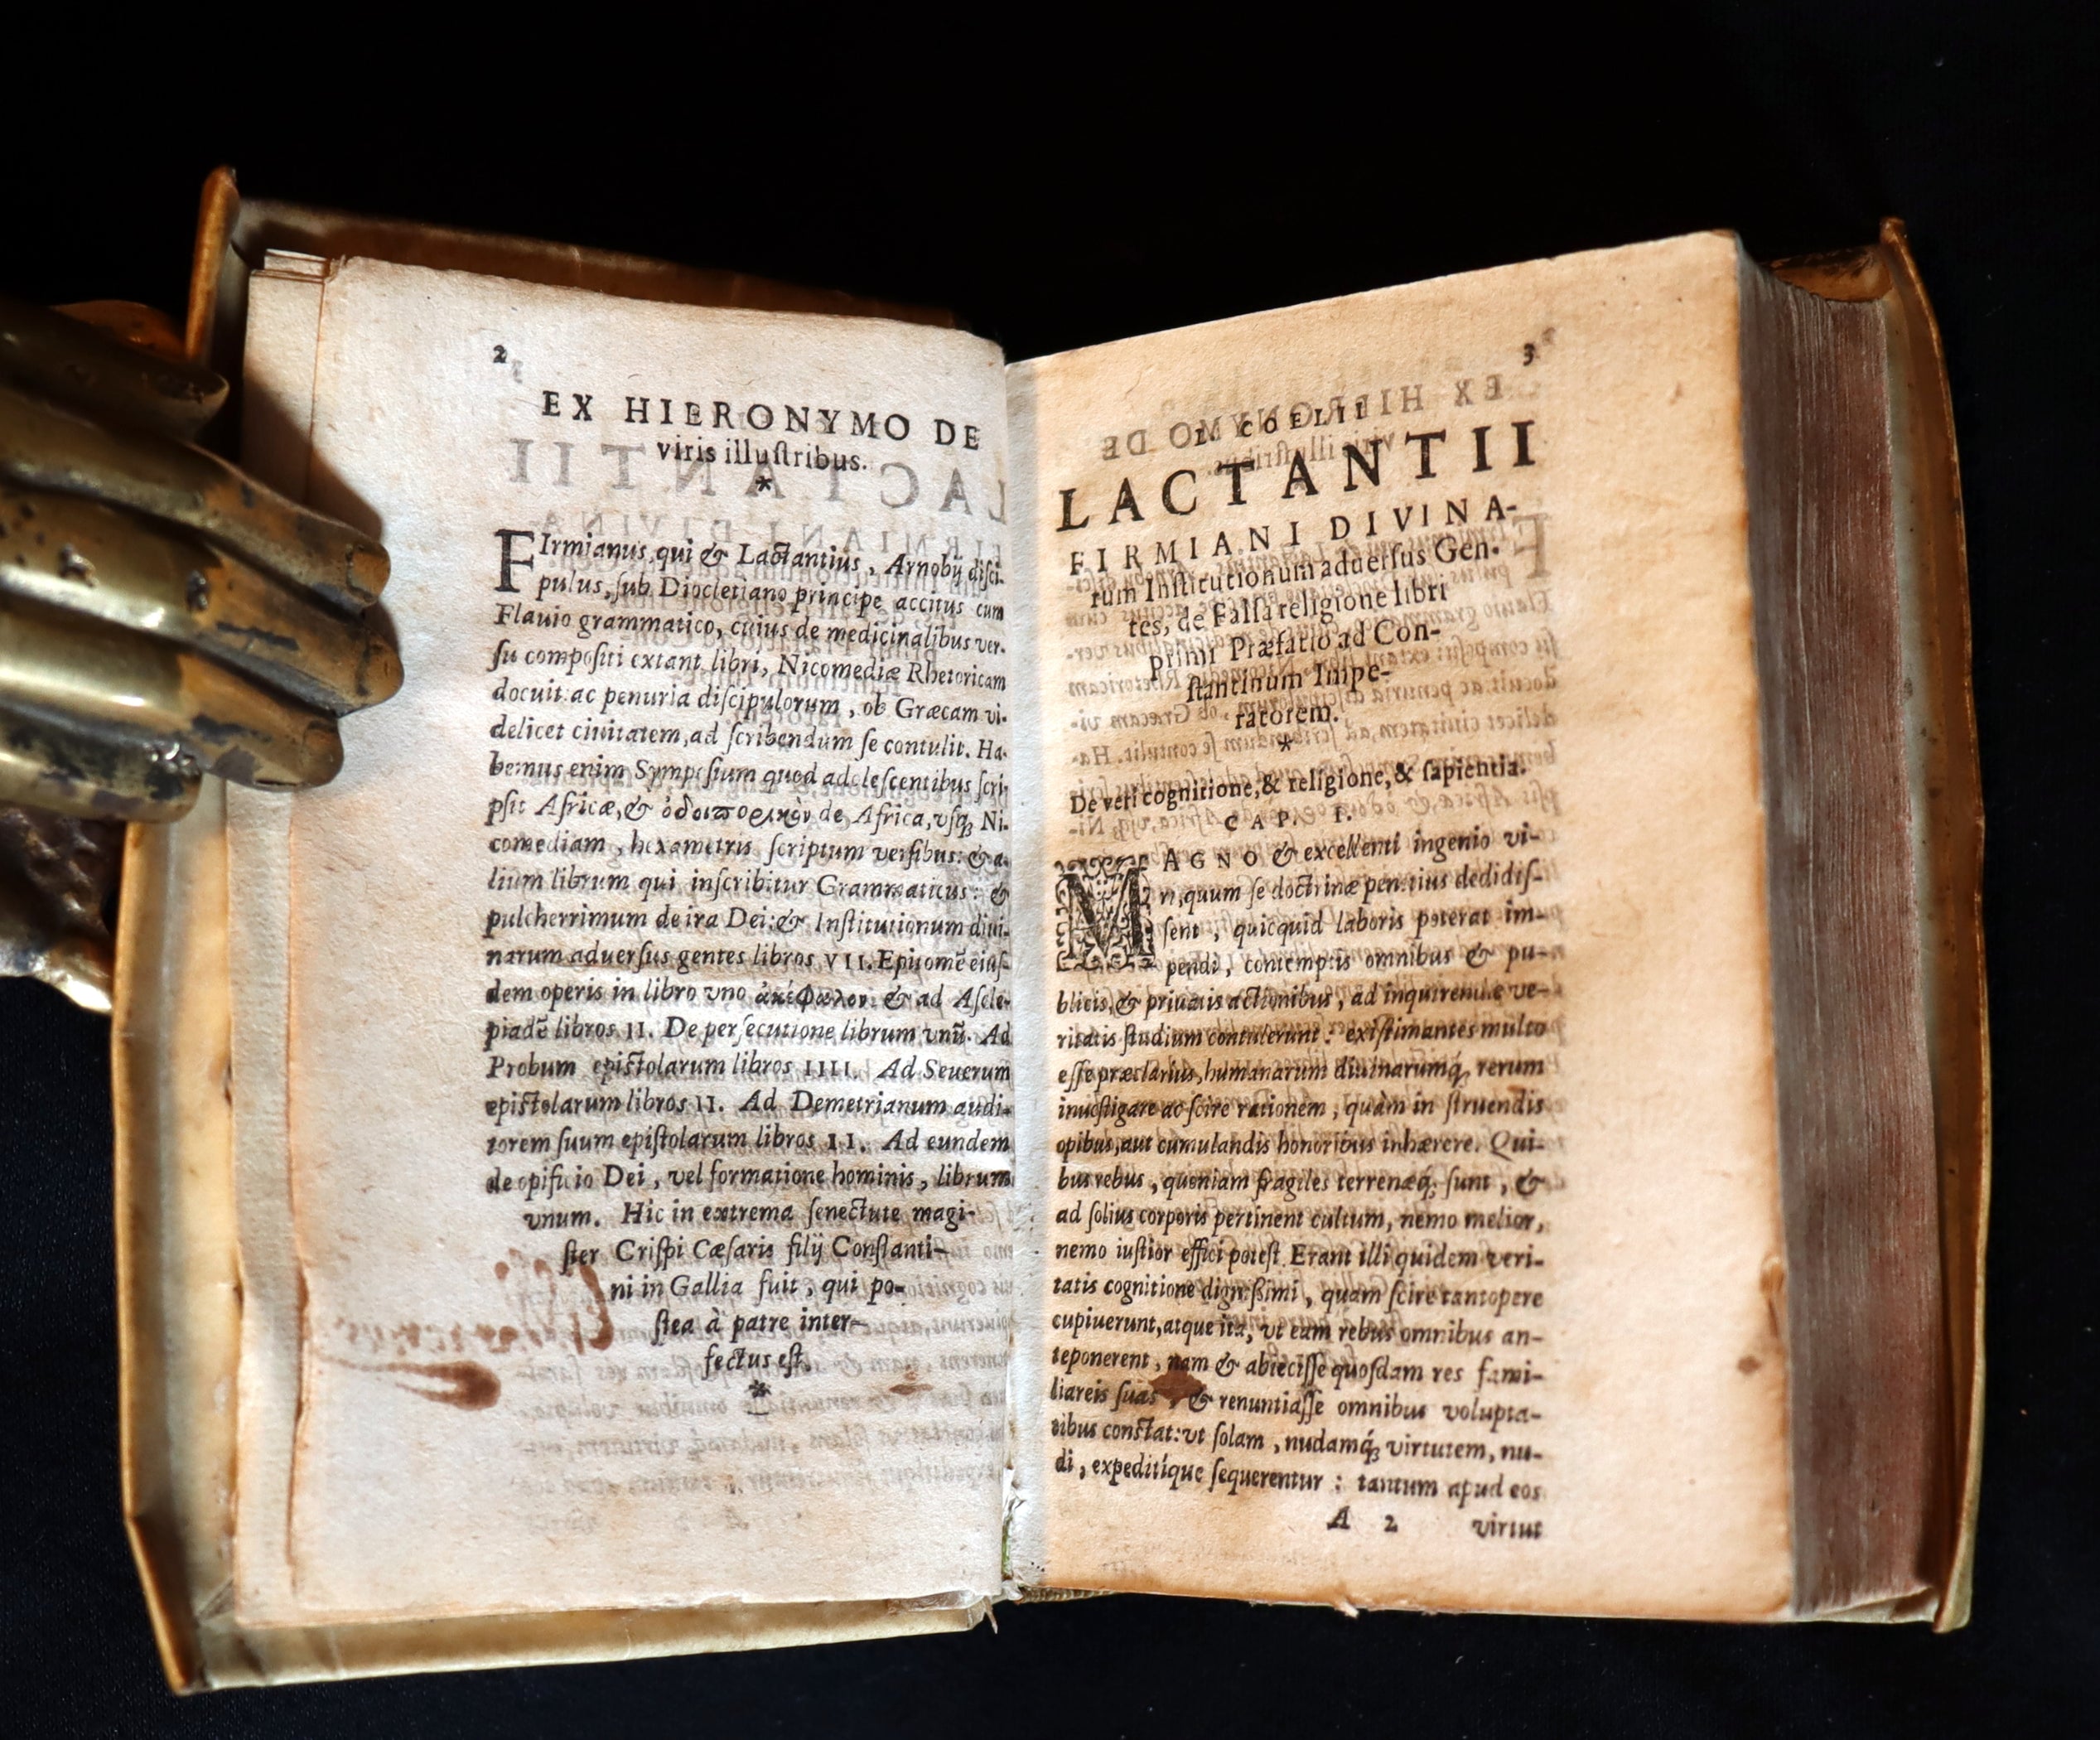 2
EX HIERONYMO DE
viris illuſtribus.
*
FIrmianus, qui & Lactantius, Arnobij diſci-
pulus, ſub Diocletiano principe accitus cum
Flauio grammatico, cuius de medicinalibus ver-
ſu compoſiti extant libri, Nicomediæ Rhetoricam
docuit: ac penuria diſcipulorum, ob Græcam vi-
delicet ciuitatem, ad ſcribendum ſe contulit. Ha-
bemus enim Sympoſium quod adoleſcentibus ſcri-
pſit Africæ, & ὁδοιπορικὸν de Africa, vſq; Ni-
comediam, hexametris ſcriptum verſibus: & a-
lium librum qui inſcribitur Grammaticus: &
pulcherrimum de ira Dei: & Inſtitutionum diui-
narum aduerſus gentes libros VII. Epitomẽ eiuſ-
dem operis in libro vno ἀκέφαλον: & ad Aſcle-
piadẽ libros II. De perſecutione librum vnũ. Ad
Probum epiſtolarum libros IIII. Ad Seuerum
epiſtolarum libros II. Ad Demetrianum audi-
torem ſuum epiſtolarum libros II. Ad eundem
de opificio Dei, vel formatione hominis, librum
vnum. Hic in extrema ſenectute magi-
ſter Criſpi Cæſaris filij Conſtanti-
ni in Gallia fuit, qui po-
ſtea à patre inter-
fectus eſt.
*
3
L. COELII
LACTANTII
FIRMIANI DIVINA-
rum Inſtitutionum aduerſus Gen-
tes, de Falſa religione libri
primi Præfatio ad Con-
ſtantinum Impe-
ratorem.
*
De veri cognitione, & religione, & ſapientia.
CAP. I.
MAGNO & excellenti ingenio vi-
ri, quum ſe doctrinæ penitius dedidiſ-
ſent, quicquid laboris poterat im-
pendi, contemptis omnibus & pu-
blicis, & priuatis actionibus, ad inquirendæ ve-
ritatis ſtudium contulerunt: exiſtimantes multo
eſſe præclarius, humanarum diuinarumq́; rerum
inueſtigare ac ſcire rationem, quàm in ſtruendis
opibus, aut cumulandis honoribus inhærere. Qui-
bus rebus, quoniam fragiles terrenæq́; ſunt, &
ad ſolius corporis pertinent cultum, nemo melior,
nemo iuſtior effici poteſt. Erant illi quidem veri-
tatis cognitione digniſſimi, quam ſcire tantopere
cupiuerunt, atque ita, vt eam rebus omnibus an-
teponerent, nam & abieciſſe quoſdam res fami-
liareis ſuas, & renuntiaſſe omnibus volupta-
tibus conſtat: vt ſolam, nudamq́; virtutem, nu-
di, expeditíque ſequerentur: tantum apud eos
A 2 virtut